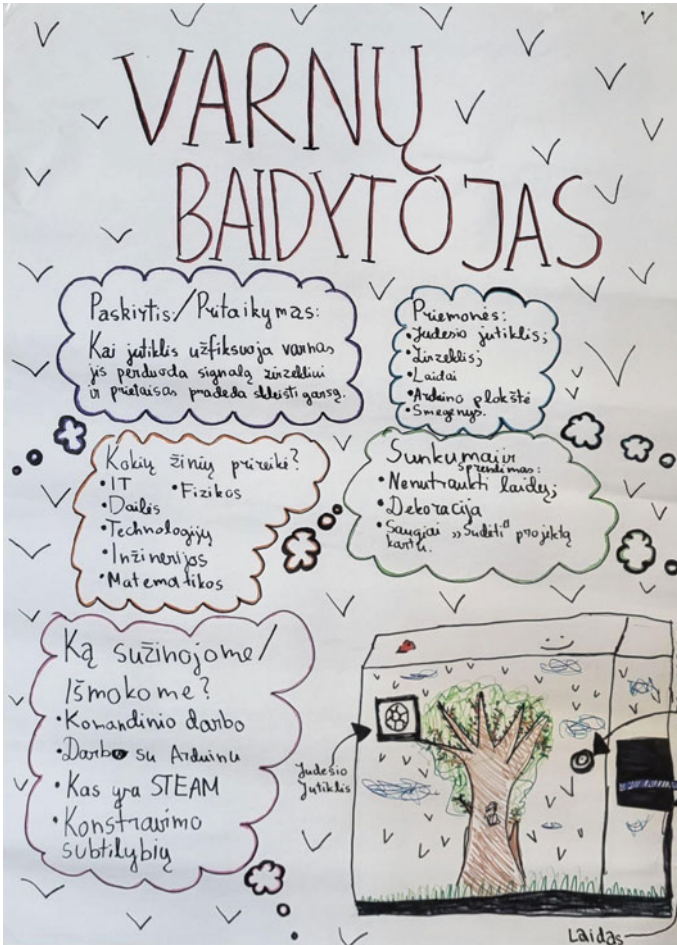 VARNŲ
BAIDYTOJAS
Paskirtis/Pritaikymas:
Kai jutiklis užfiksuoja varnas
jis perduoda signalą zirzekliui
ir prietaisas pradeda skleisti garsą.
Priemonės:
•Judesio jutiklis;
•Zirzeklis;
•Laidai
•Arduino plokštė
•Smegenys.
Kokių žinių prireikė?
•IT •Fizikos
•Dailės
•Technologijų
•Inžinerijos
•Matematikos
Sunkumai ir
sprendimas:
•Nenutraukti laidų;
•Dekoracija
•Saugiai „Sudėti“ projektą
kartu.
Ką sužinojome/
Išmokome?
•Komandinio darbo
•Darbo su Arduinu
•Kas yra STEAM
•Konstravimo
subtilybių
Judesio
Jutiklis
Laidas